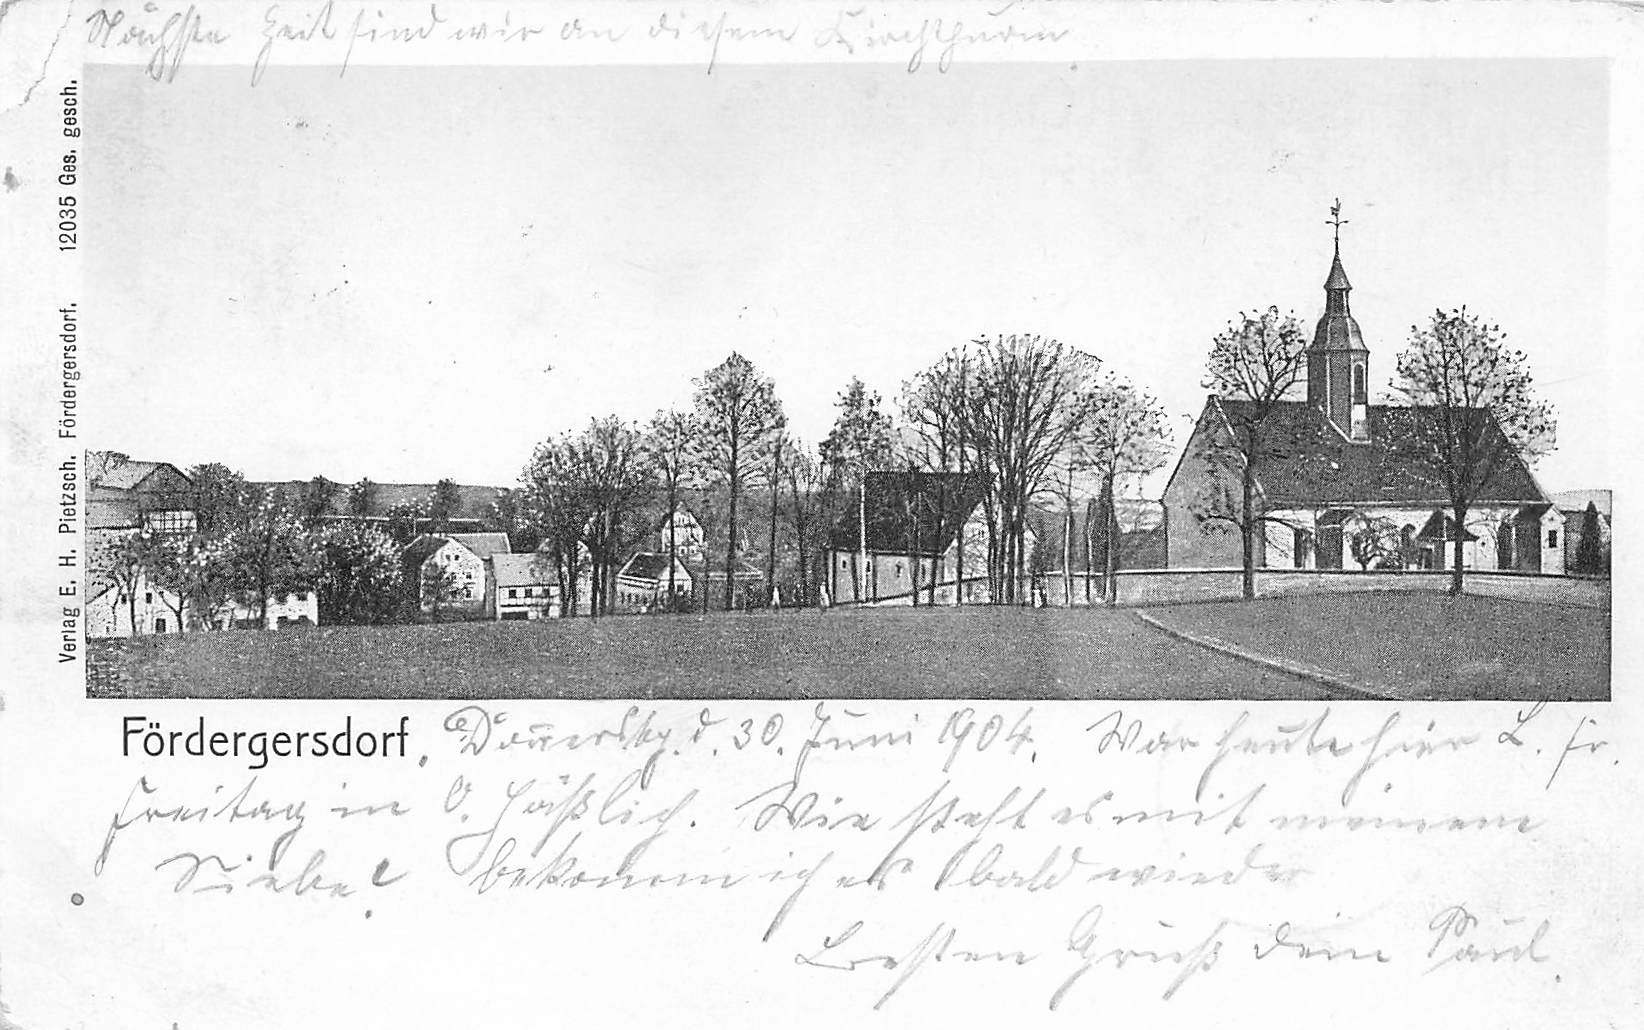 Nächste Zeit sind wir an diesem Kirchthurm
Verlag E. H. Pietzsch. Fördergersdorf. 12035 Ges. gesch.
Fördergersdorf, Donnerstg. d. 30. Juni 1904. War heute hier
Freitag in O. Häßlich. Wie steht es mit meinem
Siebe? bekomm ich es bald wieder
Besten Gruß dein Paul.